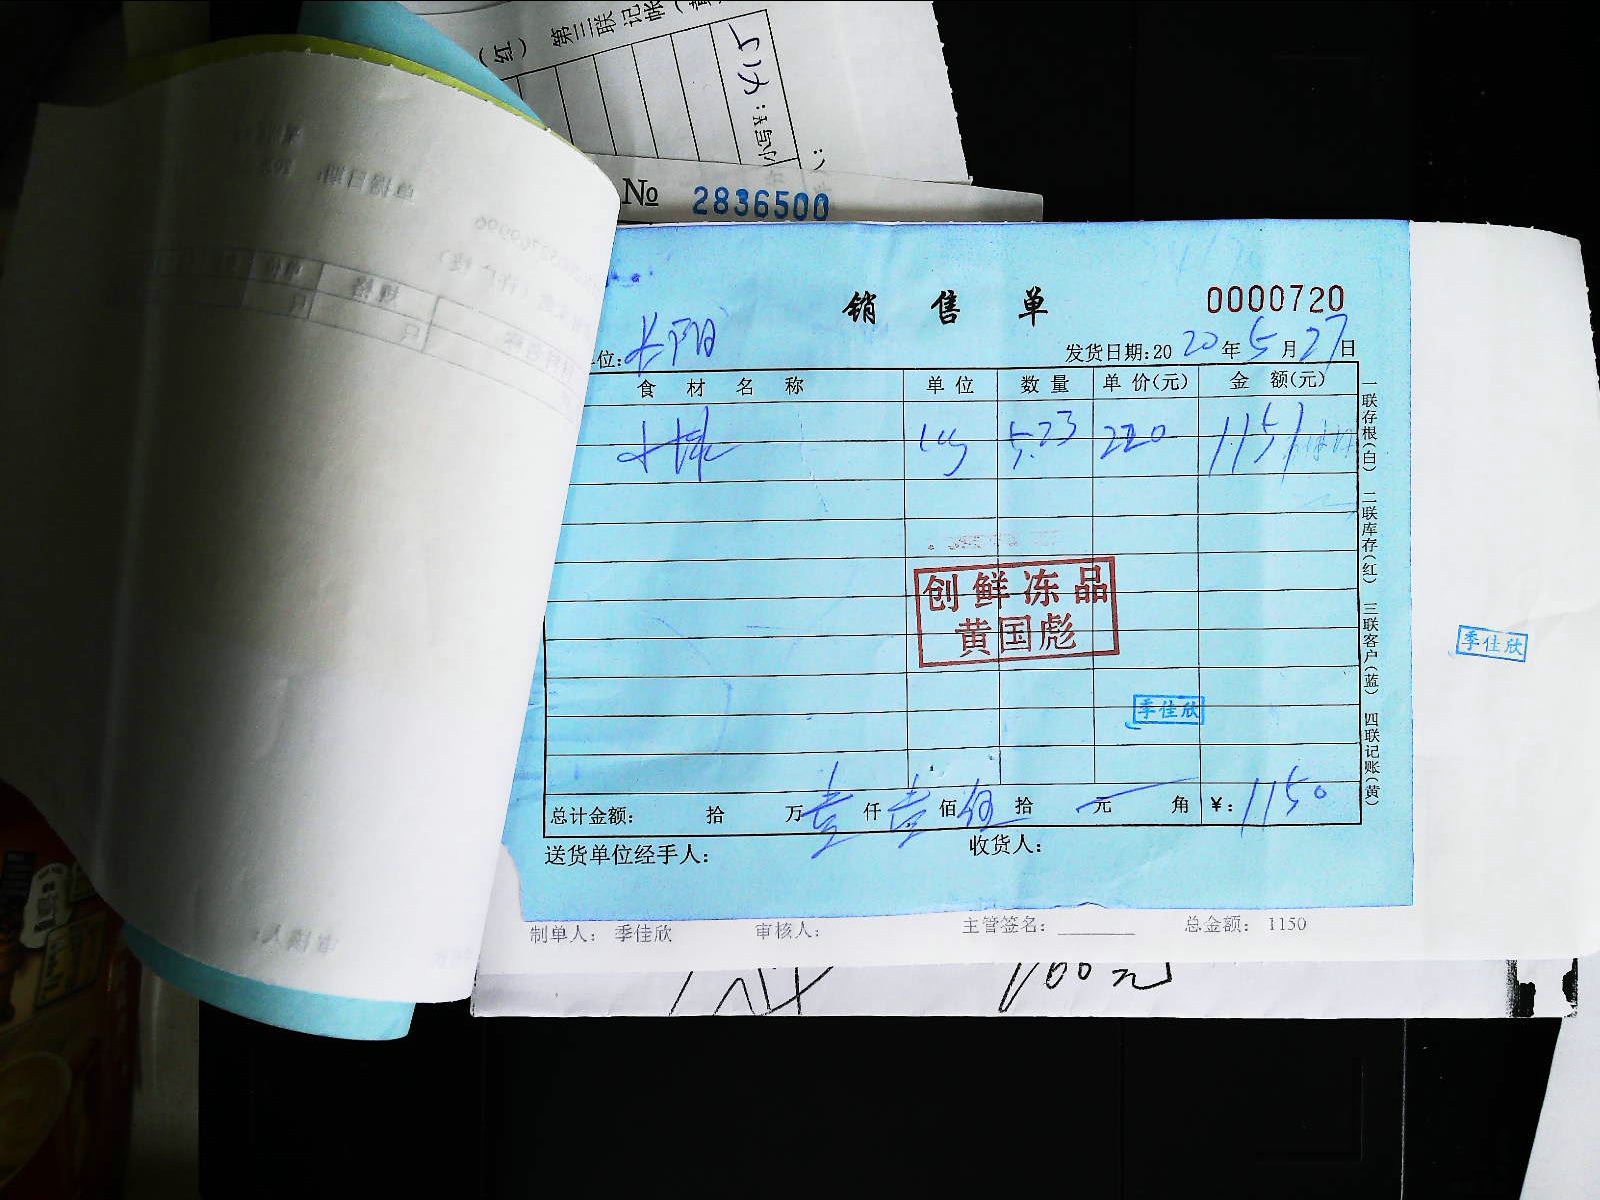 (红) 第三联记帐(黄
小写:
№ 2836500
销售单 0000720
位: 长阳 发货日期:2020年5月27日
食材名称 单位 数量 单价(元) 金额(元)
5.23 220 1151
一联存根(白) 二联库存(红) 三联客户(蓝) 四联记账(黄)
创鲜冻品
黄国彪
季佳欣
季佳欣
总计金额: 拾 万壹仟壹佰伍拾 元 角 ¥:1150
送货单位经手人: 收货人:
制单人: 季佳欣 审核人: 主管签名: 总金额: 1150
100元
单据日期:
规格 单位
只 只
审核人: